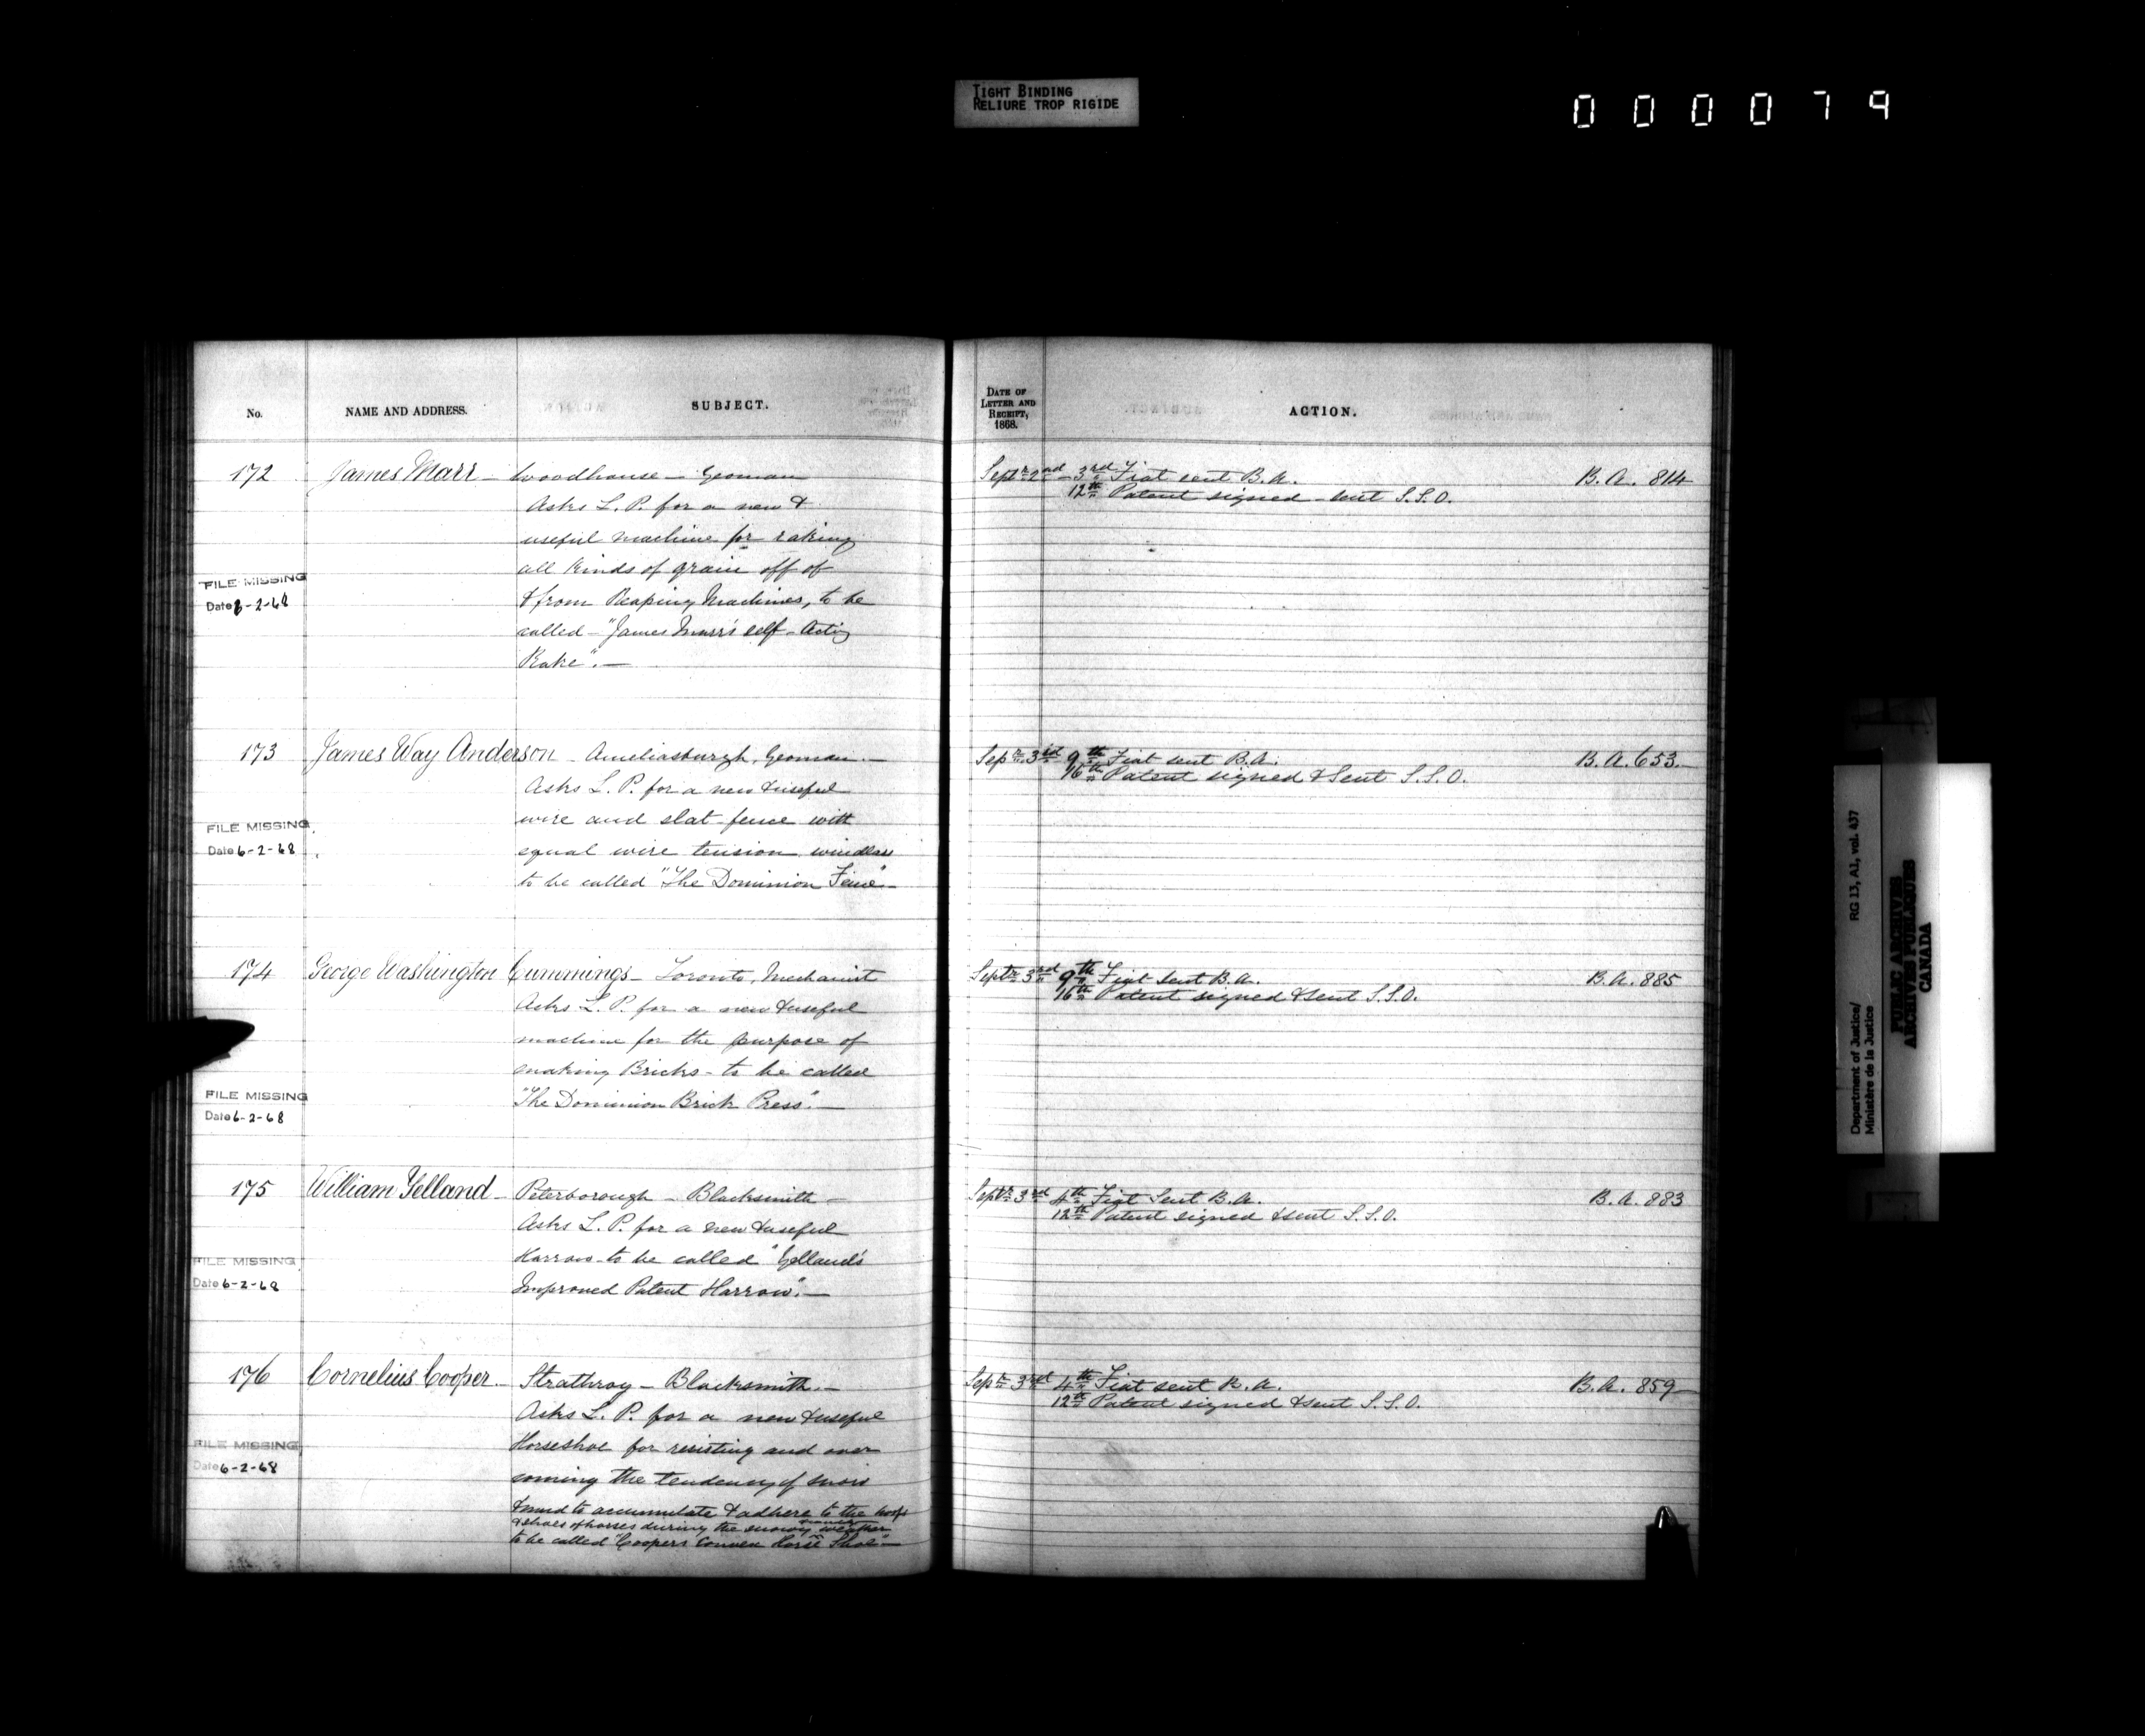 TIGHT BINDING
RELIURE TROP RIGIDE
000079
No.
NAME AND ADDRESS.
SUBJECT.
DATE OF
LETTER AND
RECEIPT,
1868.
ACTION.
172 James Marr - Woodhouse - Yeoman
Asks L. P. for a new &
useful machine for raking
all kinds of grain off of
& from Reaping Machines, to be
called - "James Marr's self-Acting
Rake". —
FILE MISSING
Date 6-2-68
Septr 2nd - 3rd Fiat sent B.A. B. A. 814
12th Patent signed - sent S.S.O.
173 James Way Anderson - Ameliasburgh, Yeoman. —
Asks L. P. for a new & useful
wire and slat fence with
equal wire tension windlass
to be called "The Dominion Fence" —
FILE MISSING
Date 6-2-68
Sepr 3rd 9th Fiat sent B.A. B. A. 653.
16th Patent signed & Sent S.S.O.
174 George Washington Cummings - Toronto, Mechanist
Asks L. P. for a new & useful
machine for the purpose of
making Bricks - to be called
"The Dominion Brick Press". —
FILE MISSING
Date 6-2-68
Septr 3rd 9th Fiat Sent B.A. B. A. 885
16th Patent signed & sent S.S.O.
175 William Yelland - Peterborough - Blacksmith -
Asks L. P. for a new & useful
Harrow - to be called "Yelland's
Improved Patent Harrow". —
FILE MISSING
Date 6-2-68
Septr 3rd 4th Fiat Sent B.A. B. A. 883
12th Patent signed & sent S.S.O.
176 Cornelius Cooper. - Strathroy - Blacksmith. -
Asks L. P. for a new & useful
Horseshoe for resisting and over
coming the tendency of snow
& mud to accumulate & adhere to the hoofs
& shoes of horses during the snowy weather
to be called "Coopers Convex Horse Shoe" —
FILE MISSING
Date 6-2-68
Sept 3rd 4th Fiat sent B.A. B. A. 859
12th Patent signed & sent S.S.O.
Department of Justice/
Ministère de la Justice
RG 13, A1, vol. 437
PUBLIC ARCHIVES
ARCHIVES PUBLIQUES
CANADA